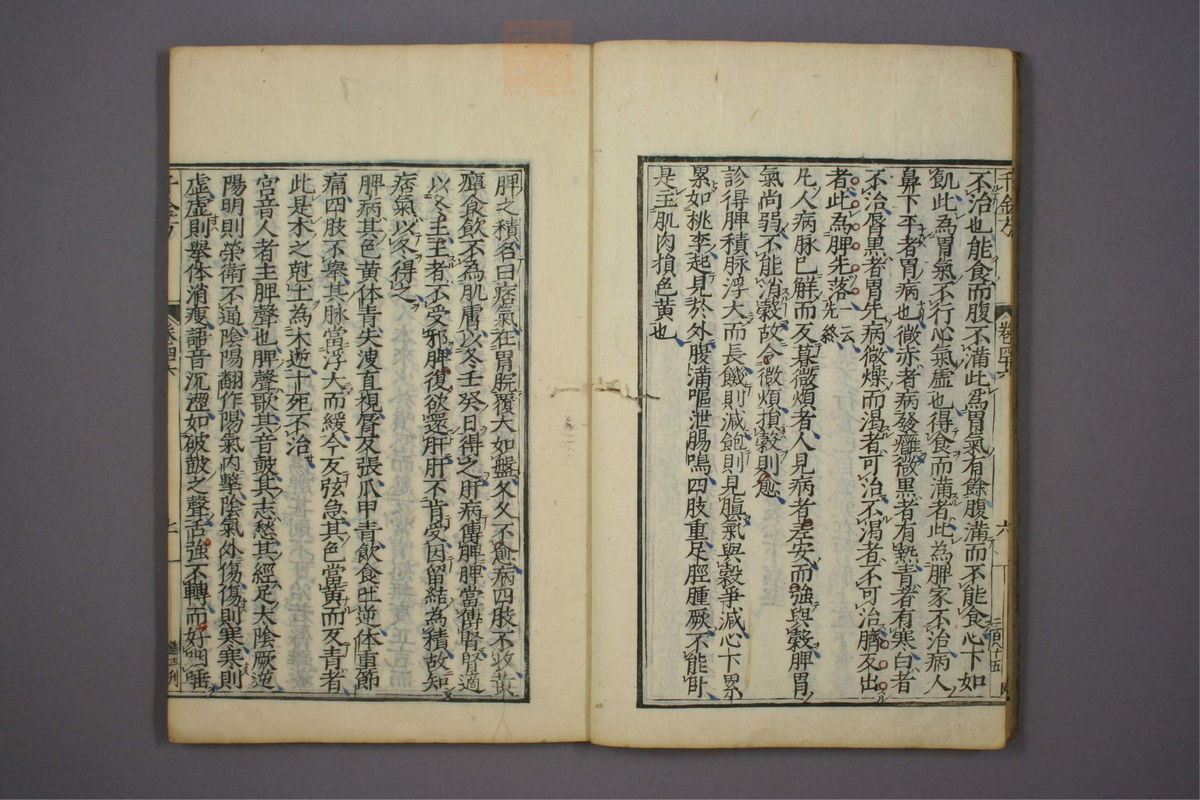 千金方
卷四十六
六
不治也能食而腹不滿此為胃氣有餘腹滿而不能食心下如
飢此為胃氣不行心氣虛也得食而滿者此為脾家不治病人
鼻下平者胃病也微赤者病發癰微黑者有熱青者有寒白者
不治唇黑者胃先病微燥而渴者可治不渴者不可治臍反出
者此為脾先落一云先終
凡人病脉已解而反暮微煩者人見病者差安而強與穀脾胃
氣尚弱不能消穀故令微煩損穀則愈
診得脾積脉浮大而長饑則減飽則見䐜氣與穀爭減心下累
累如桃李起見於外腹滿嘔泄腸鳴四肢重足脛腫厥不能臥
是主肌肉損色黃也
脾之積名曰痞氣在胃脘覆大如盤久久不愈病四肢不收黃
癉食飲不為肌膚以冬壬癸日得之肝病傳脾脾當傳腎腎適
以冬王王者不受邪脾復欲還肝肝不肯受因留結為積故知
痞氣以冬得之
脾病其色黃体青失溲直視唇反張爪甲青飲食吐逆体重節
痛四肢不舉其脉當浮大而緩今反弦急其色當黃而反青者
此是木之尅土為大逆十死不治
宮音人者主脾聲也脾聲歌其音鼓其志愁其經足太陰厥逆
陽明則榮衛不通陰陽翻作陽氣內擊陰氣外傷傷則寒寒則
虛虛則舉体消瘦語音沉澀如破鼓之聲舌強不轉而好咽唾
千金方
卷四十六
七